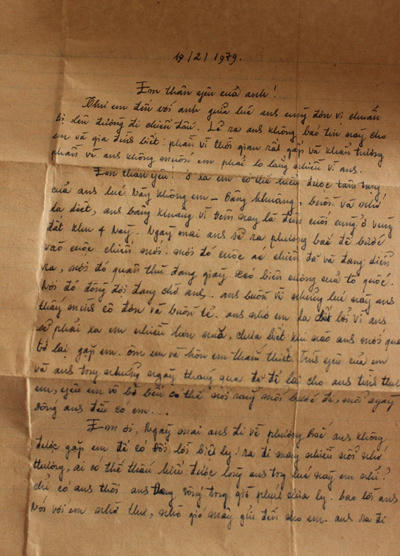 19/2/1979.
Em thân yêu của anh!
Thư em đến với anh giữa lúc anh cũng đón vì chuẩn
bị lên đường đi chiến đấu. Lẽ ra anh không báo tin này cho
em và gia đình biết: phần vì thời gian rất gấp và khẩn trương
phần vì anh không muốn em phải lo lắng nhiều vì anh.
Em thân yêu! ở xa em có thể hiểu được tâm trạng
của anh lúc này không em - bâng khuâng, buồn và nhớ
da diết, anh bâng khuâng vì đêm nay là đêm cuối cùng ở vùng
đất khu 4 này. Ngày mai anh sẽ ra phương bắc để bước
vào cuộc chiến mới. nơi đó cuộc chiến đã và đang diễn
ra, nơi đó quân thù đang giày xéo biên cương của tổ quốc.
Nơi đó đồng đội đang chờ anh. anh buồn vì những lúc này anh
thấy mình cô đơn và buồn tẻ. anh nhớ em da diết bởi vì anh
sẽ phải xa em nhiều hơn nữa, chưa biết khi nào anh mới quay
trở lại gặp em. ôm em và hôn em tha thiết. Tình yêu của em
với anh trong những ngày tháng qua đã để lại cho anh tình thương
em, yêu em vô bờ bến có thể nói rằng mỗi bước đi, mỗi ngày
sống anh đều có em...
Em ơi, Ngày mai anh đi về phương bắc anh không
được gặp em để có đôi lời biệt ly. ra đi mang nhiều nỗi nhớ
thương, ai có thể thấu hiểu được lòng anh trong lúc này em nhỉ?
chỉ có anh thôi anh đang sống trong giờ phút chia ly. bao lời anh
nói với em nhờ thư, nhờ gió mây gửi đến cho em. anh ra đi